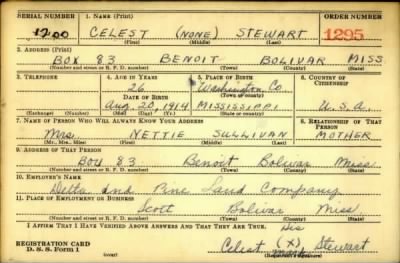 SERIAL NUMBER 1. NAME (Print) ORDER NUMBER
1200 CELEST (NONE) STEWART 1295
(First) (Middle) (Last)
2. ADDRESS (Print)
BOX 83 BENOIT BOLIVAR MISS
(Number and street or R. F. D. number) (Town) (County) (State)
3. TELEPHONE 4. AGE IN YEARS 5. PLACE OF BIRTH 6. COUNTRY OF CITIZENSHIP
26 Washington Co.
DATE OF BIRTH (Town or county)
Aug. 20, 1914 MISSISSIPPI U.S.A.
(Exchange) (Number) (Mo.) (Day) (Yr.) (State or country)
7. NAME OF PERSON WHO WILL ALWAYS KNOW YOUR ADDRESS 8. RELATIONSHIP OF THAT PERSON
Mrs. NETTIE SULLIVAN MOTHER
(Mr., Mrs., Miss) (First) (Middle) (Last)
9. ADDRESS OF THAT PERSON
Box 83 Benoit Bolivar Miss.
(Number and street or R. F. D. number) (Town) (County) (State)
10. EMPLOYER'S NAME
Delta and Pine Land Company
11. PLACE OF EMPLOYMENT OR BUSINESS
Scott Bolivar Miss
(Number and street or R. F. D. number) (Town) (County) (State)
I AFFIRM THAT I HAVE VERIFIED ABOVE ANSWERS AND THAT THEY ARE TRUE.
His
REGISTRATION CARD Celest (X) Stewart
D. S. S. Form 1 mark
(Registrant's signature)